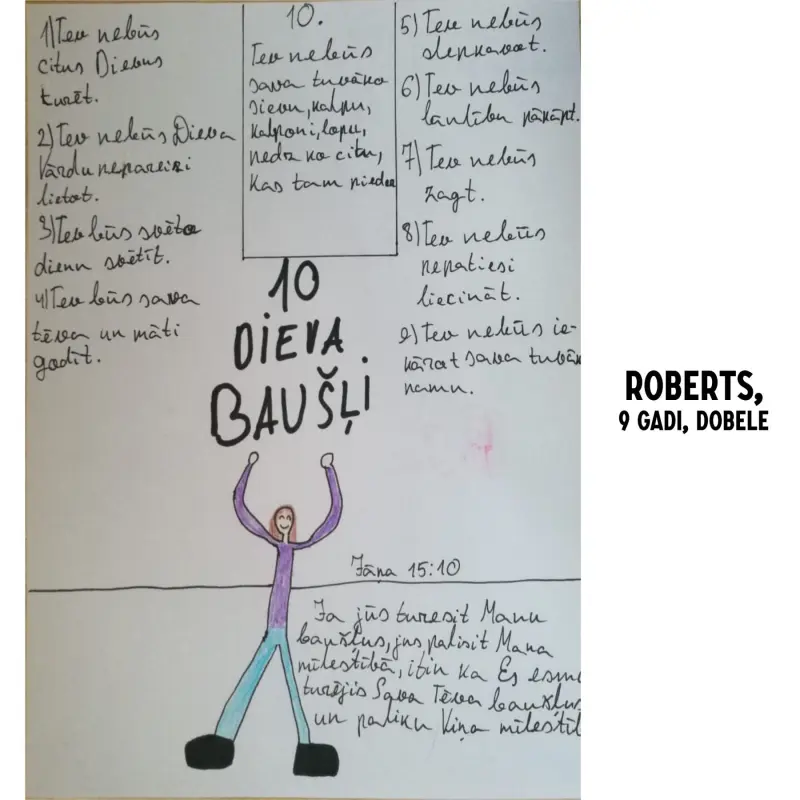 1) Tev nebūs
citus Dievus
turēt.
2) Tev nebūs Dieva
Vārdu nepareizi
lietot.
3) Tev būs svēto
dienu svētīt.
4) Tev būs sava
tēvu un māti
godīt.
10.
Tev nebūs
sava tuvāko
sievu, kalpu,
kalponi, lopu,
nedz ko citu,
kas tam pieder
5) Tev nebūs
slepkavot.
6) Tev nebūs
laulību pārkāpt.
7) Tev nebūs
zagt.
8) Tev nebūs
nepatiesi
liecināt.
9) Tev nebūs ie-
kārot sava tuvāk
namu.
10
DIEVA
BAUŠĻI
Jāņa 15:10
Ja jūs turēsit Manu
baušļus, jūs palisit Mana
mīlestībā, itin kā Es esmu
turējis Sava Tēva baušļus
un palieku Viņa mīlestīb
ROBERTS,
9 GADI, DOBELE